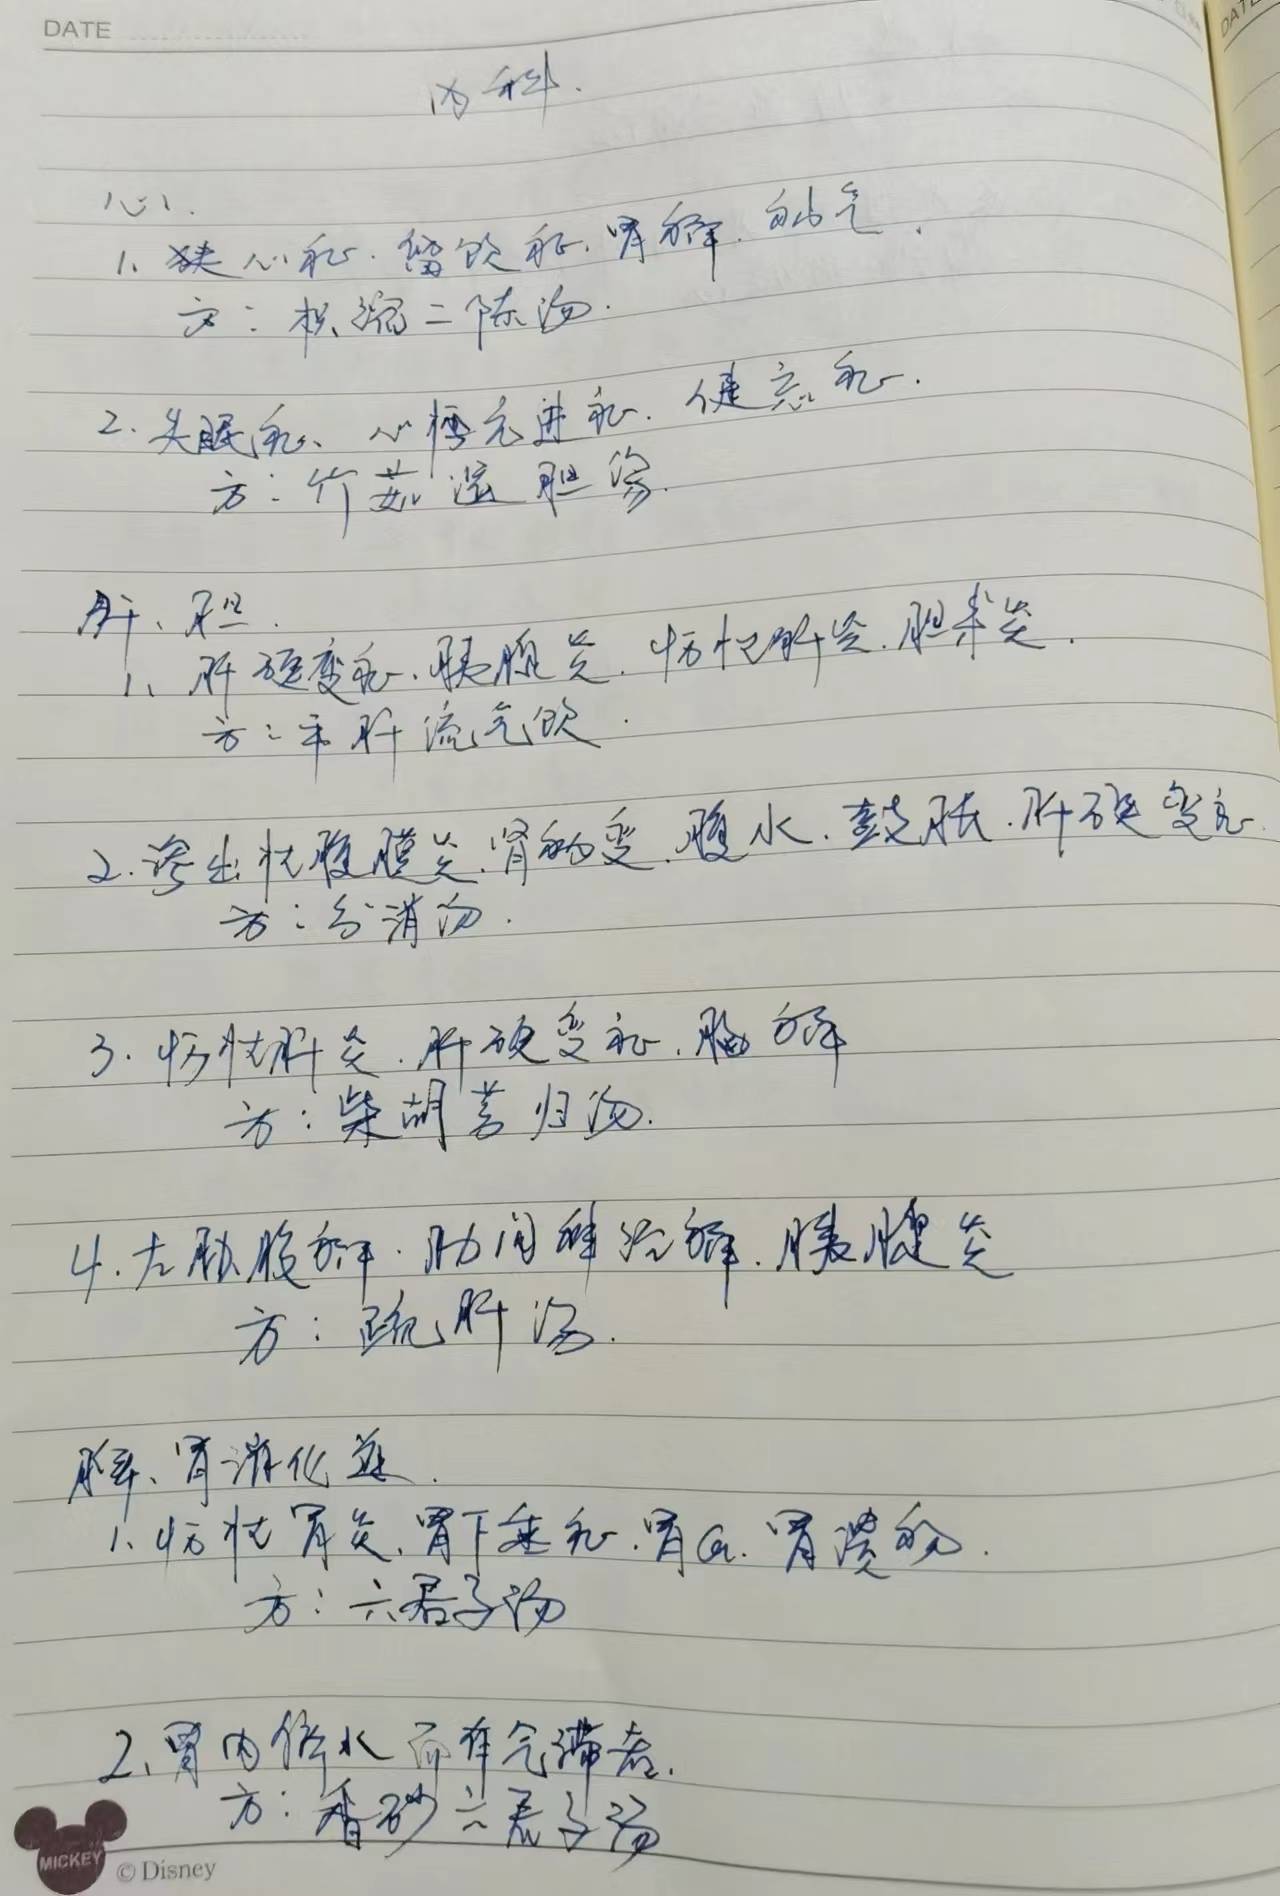 DATE
DATE
内科.
心.
1、狭心症.留饮症.胃痛.疝气.
方:枳缩二陈汤.
2.失眠症、心悸亢进症.健忘症.
方:竹茹温胆汤.
肝、胆.
1、肝硬变症.胰腺炎.慢性肝炎.胆囊炎.
方:平肝流气饮.
2.渗出性腹膜炎.肾病变.腹水.鼓胀.肝硬变症.
方:分消汤.
3.慢性肝炎.肝硬变症.胸痛
方:柴胡芎归汤.
4.左胁腹痛.肋间神经痛.胰腺炎
方:疏肝汤.
脾、胃消化道.
1、慢性胃炎、胃下垂症.胃Ca.胃溃疡.
方:六君子汤
2、胃内停水而有气滞者.
方:香砂六君子汤
MICKEY
© Disney